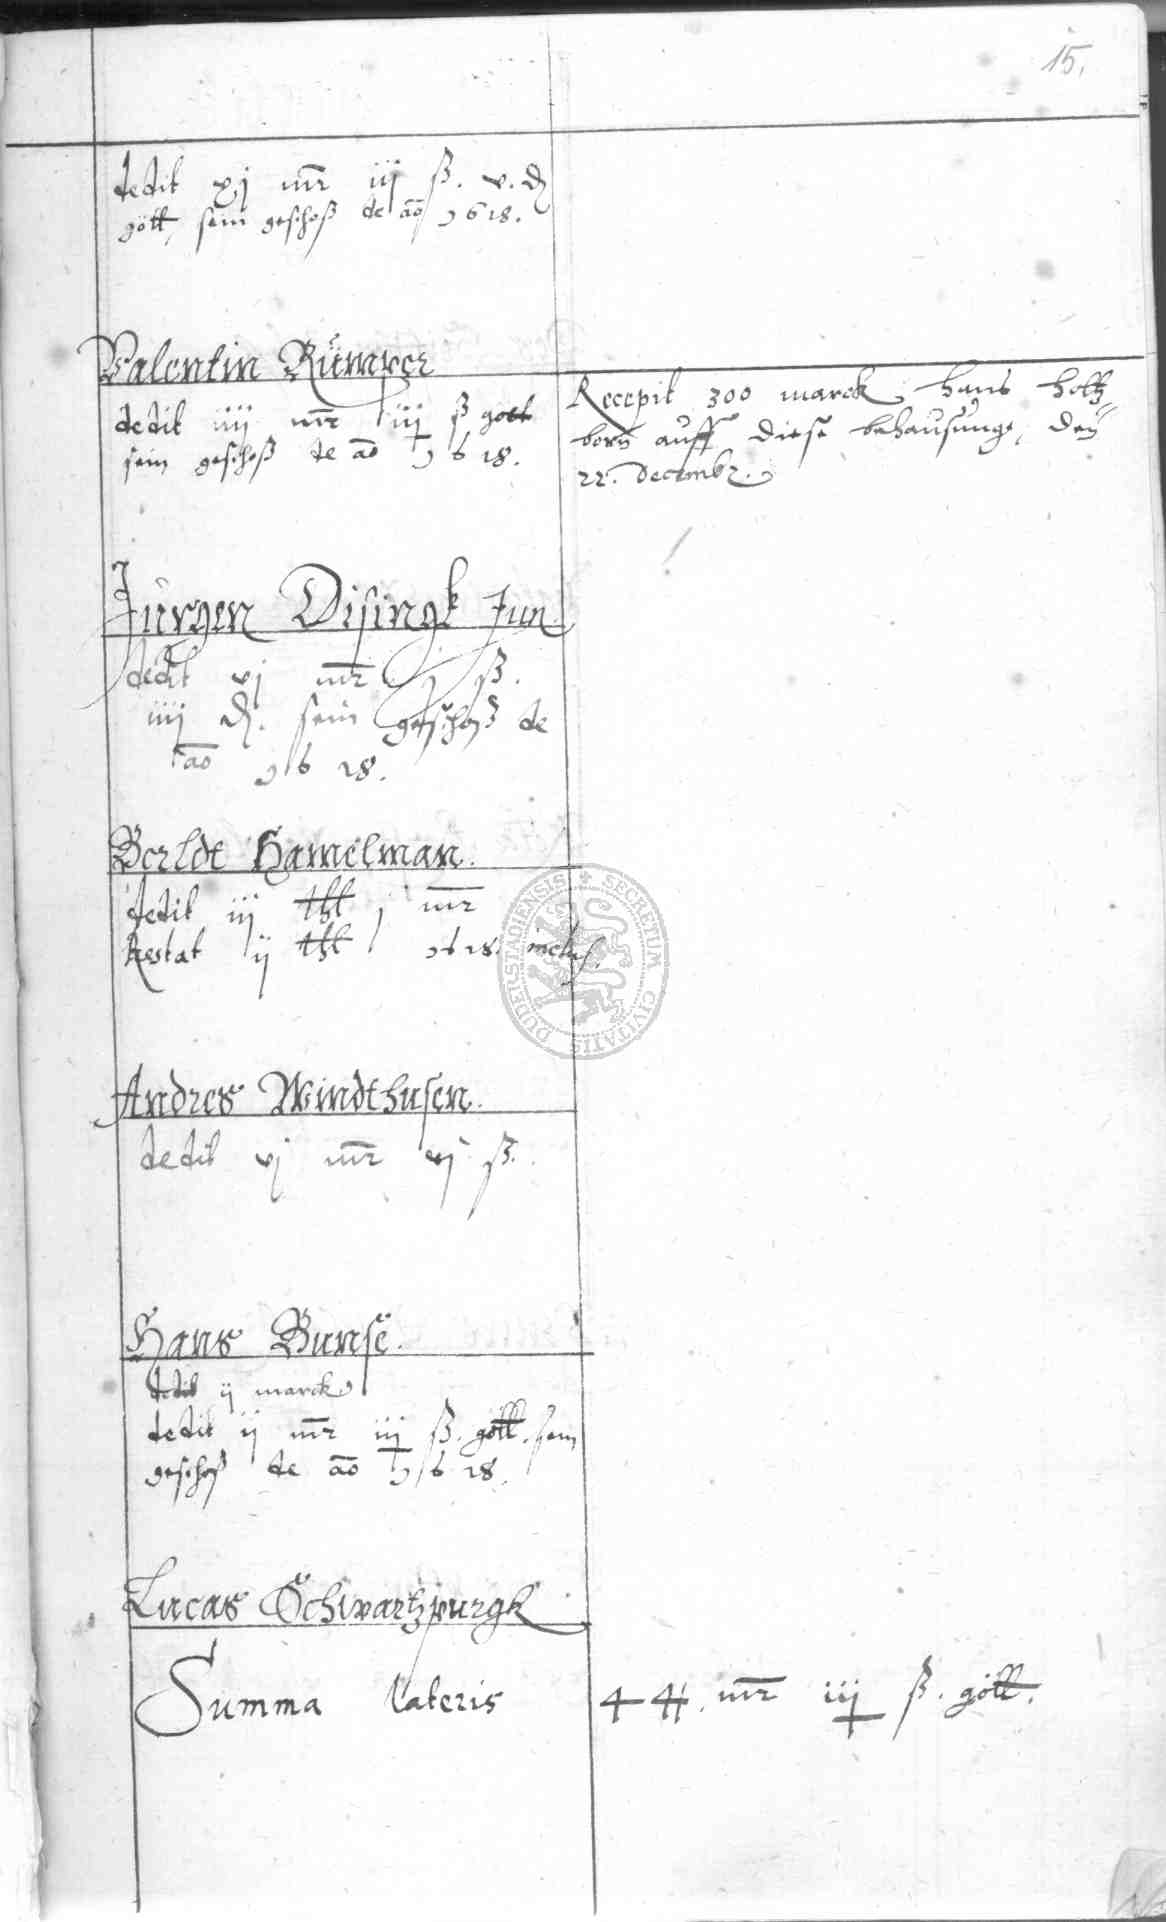 15.
dedit xj mr iij ß. v. ₰
gött. sein geschoß de ao 1618.
Valentin Rümper
dedit iiij mr iij ß gott
sein geschoß de ao 1618.
Recepit 300 marck Hans Holtz
born auff diese behausunge, den
22. Decembr.
Jurgen Disingk Jun.
dedit vj mr j ß.
iiij ₰. sein geschoß de
ao 1618.
Berldt Hamelman.
dedit iij thl j mr
Restat ij thl 1618. inclus.
Andres Windthusen.
dedit vj mr vj ß.
Hans Bunse.
dedit ij marck
dedit ij mr iij ß. gött. sein
geschoß de ao 1618.
Lucas Schwartzpurgk
Summa lateris 44. mr iij ß. gött.
SECRETUM CIVITATIS DUDERSTADIENSIS